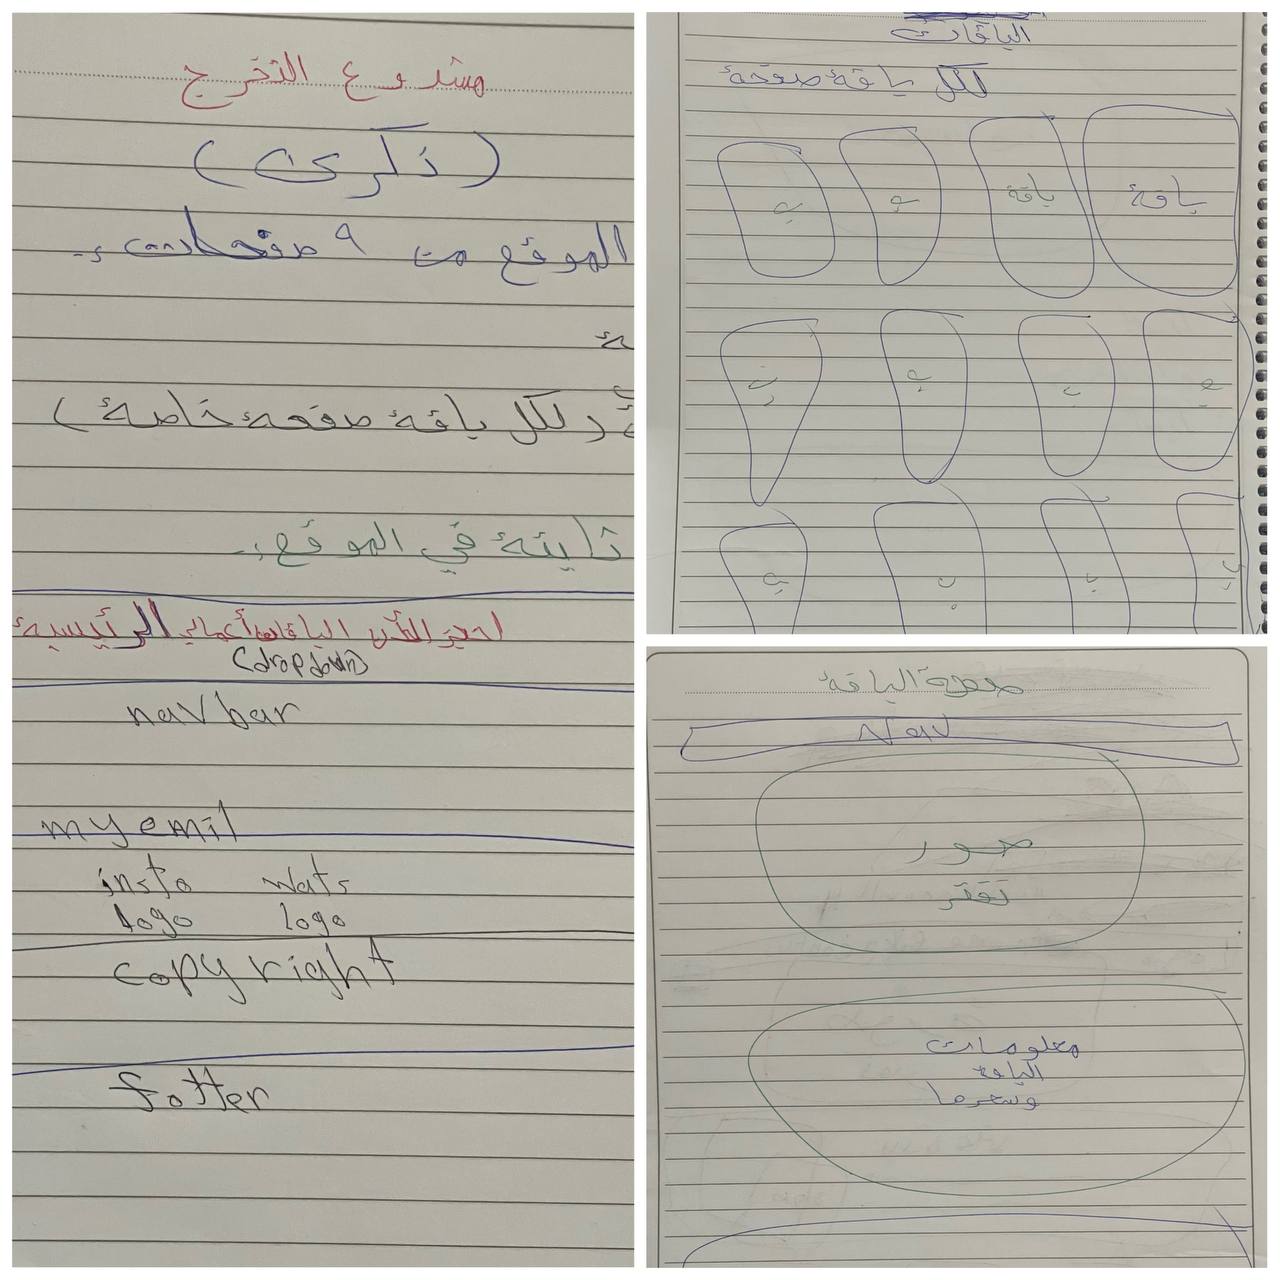 مشروع التخرج
(ذكرى)
الموقع من ٩ صفحات :-
ولكل باقة صفحة خاصة)
ثابتة في الموقع :-
احجز الآن الباقات أعمالي الرئيسية
(dropdown)
navbar
my emil
insta wats
logo logo
copy right
fotter
الباقات
لكل باقة صفحة
باقة باقة ب ب
ب ب ب ب
ب ب ب ب
صفحة الباقة
Nav
صور
تقلب
معلومات
الباقة
وسعرها